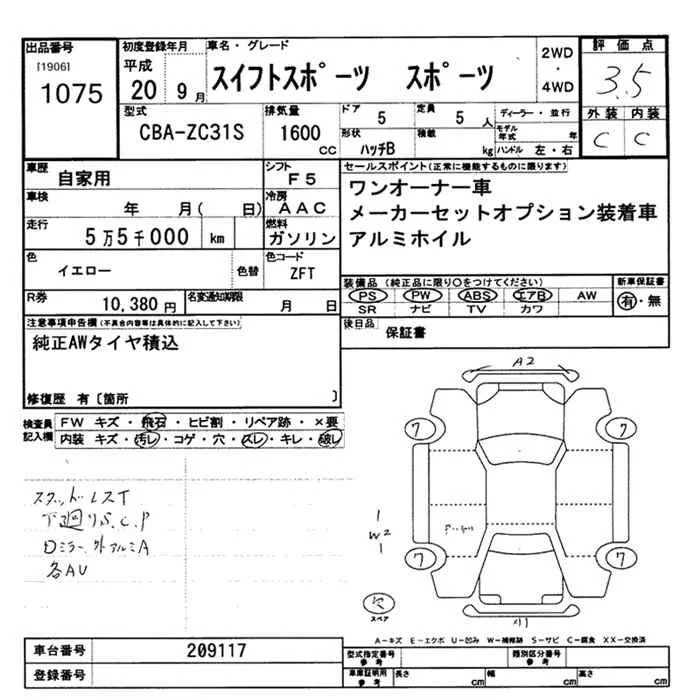 出品番号
[1906]
1075
初度登録年月
平成
20 9月
車名・グレード
スイフトスポーツ スポーツ
2WD
・
4WD
評価点
3.5
外装 内装
C C
型式
CBA-ZC31S
排気量
1600
CC
ドア
5
定員
5 人
形状
ハッチB
積載
kg
ディーラー・並行
モデル年式 年
ハンドル 左・右
車歴
自家用
シフト
F5
車検
年 月( 日)
冷房
AAC
走行
5万5千000 km
燃料
ガソリン
色
イエロー
色替
色コード
ZFT
R券
10,380円
名変通知期限
月 日
セールスポイント(正常に機能するものに限ります)
ワンオーナー車
メーカーセットオプション装着車
アルミホイル
装備品(純正品に限り○をつけてください)
PS PW ABS エアB AW
SR ナビ TV カワ
新車保証書
有・無
後日品
保証書
注意事項申告欄(不具合内容等は具体的に記入して下さい)
純正AWタイヤ積込
修復歴 有〔箇所 〕
検査員
記入欄
FW キズ・飛石・ヒビ割・リペア跡・×要
内装 キズ・汚レ・コゲ・穴・スレ・キレ・破レ
スタッドレスT
下廻りS.C.P
ミラー.外アルミA
各AU
A2
7
7
7
7
W2
スペア
A1
A-キズ E-エクボ U-凹み W-補修跡 S-サビ C-腐食 XX-交換済
車台番号
209117
登録番号
型式指定番号
参考
類別区分番号
参考
車庫証明用
参考
長さ cm
幅 cm
高さ cm